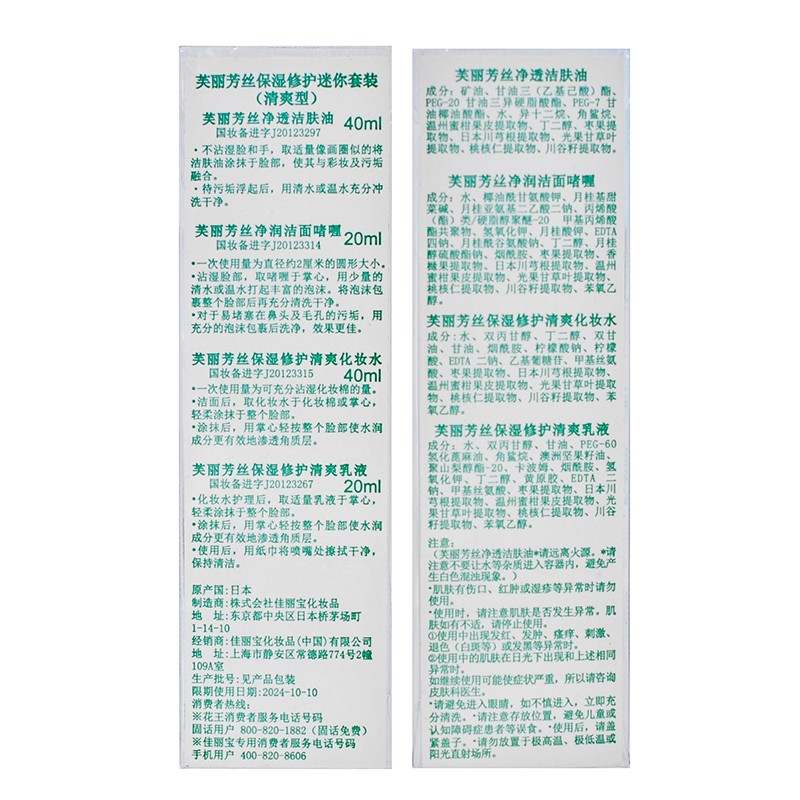 芙丽芳丝保湿修护迷你套装
（清爽型）
芙丽芳丝净透洁肤油
国妆备进字J20123297
40ml
·不沾湿脸和手，取适量像画圈似的将
洁肤油涂抹于脸部，使其与彩妆及污垢
融合。
·待污垢浮起后，用清水或温水充分冲
洗干净。
芙丽芳丝净润洁面啫喱
国妆备进字J20123314
20ml
·一次使用量为直径约2厘米的圆形大小。
·沾湿脸部，取啫喱于掌心，用少量的
清水或温水打起丰富的泡沫。将泡沫包
裹整个脸部后再充分清洗干净。
·对于易堵塞在鼻头及毛孔的污垢，用
充分的泡沫包裹后洗净，效果更佳。
芙丽芳丝保湿修护清爽化妆水
国妆备进字J20123315
40ml
·一次使用量为可充分沾湿化妆棉的量。
·洁面后，取化妆水于化妆棉或掌心，
轻柔涂抹于整个脸部。
·涂抹后，用掌心轻按整个脸部使水润
成分更有效地渗透角质层。
芙丽芳丝保湿修护清爽乳液
国妆备进字J20123267
20ml
·化妆水护理后，取适量乳液于掌心，
轻柔涂抹于整个脸部。
·涂抹后，用掌心轻按整个脸部使水润
成分更有效地渗透角质层。
·使用后，用纸巾将喷嘴处擦拭干净，
保持清洁。
原产国:日本
制造商:株式会社佳丽宝化妆品
地 址:东京都中央区日本桥茅场町
1-14-10
经销商:佳丽宝化妆品(中国)有限公司
地 址:上海市静安区常德路774号2幢
109A室
生产批号:见产品包装
限期使用日期:2024-10-10
消费者热线:
※花王消费者服务电话号码
固话用户 800-820-1882（固话免费）
※佳丽宝专用消费者服务电话号码
手机用户 400-820-8606
芙丽芳丝净透洁肤油
成分：矿油、甘油三（乙基己酸）酯、
PEG-20 甘油三异硬脂酸酯、PEG-7 甘
油椰油酸酯、水、异十二烷、角鲨烷、
温州蜜柑果皮提取物、丁二醇、枣果提
取物、日本川芎根提取物、光果甘草叶
提取物、桃核仁提取物、川谷籽提取物。
芙丽芳丝净润洁面啫喱
成分：水、椰油酰甘氨酸钾、月桂基甜
菜碱、月桂亚氨基二乙酸二钠、丙烯酸
（酯）类/硬脂醇聚醚-20 甲基丙烯酸
酯共聚物、氢氧化钾、月桂酸钾、EDTA
四钠、月桂酰谷氨酸钠、丁二醇、月桂
醇硫酸酯钠、烟酰胺、枣果提取物、香
橼果提取物、日本川芎根提取物、温州
蜜柑果皮提取物、光果甘草叶提取物、
桃核仁提取物、川谷籽提取物、苯氧乙
醇。
芙丽芳丝保湿修护清爽化妆水
成分:水、双丙甘醇、丁二醇、双甘
油、甘油、烟酰胺、柠檬酸钠、柠檬
酸、EDTA 二钠、乙基葡糖苷、甲基丝氨
酸、枣果提取物、日本川芎根提取物、
温州蜜柑果皮提取物、光果甘草叶提取
物、桃核仁提取物、川谷籽提取物、苯
氧乙醇。
芙丽芳丝保湿修护清爽乳液
成分：水、双丙甘醇、甘油、PEG-60
氢化蓖麻油、角鲨烷、澳洲坚果籽油、
聚山梨醇酯-20、卡波姆、烟酰胺、氢
氧化钾、丁二醇、黄原胶、EDTA 二
钠、甲基丝氨酸、枣果提取物、日本川
芎根提取物、温州蜜柑果皮提取物、光
果甘草叶提取物、桃核仁提取物、川谷
籽提取物、苯氧乙醇。
注意：
（芙丽芳丝净透洁肤油*请远离火源。*请
注意不要让水等杂质进入容器内，避免产
生白色混浊现象。）
*肌肤有伤口、红肿或湿疹等异常时请勿
使用。
*使用时，请注意肌肤是否发生异常。肌
肤如有不适，请停止使用。
①使用中出现发红、发肿、瘙痒、刺激、
退色（白斑等）或发黑等异常时。
②使用中的肌肤在日光下出现和上述相同
异常时。
如继续使用可能使症状严重，所以请咨询
皮肤科医生。
*请避免进入眼睛，如不慎进入，立即充
分清洗。*请注意存放位置，避免儿童或
认知障碍症患者等误食。*使用后，请盖
紧盖子。*请勿放置于极高温、极低温或
阳光直射场所。